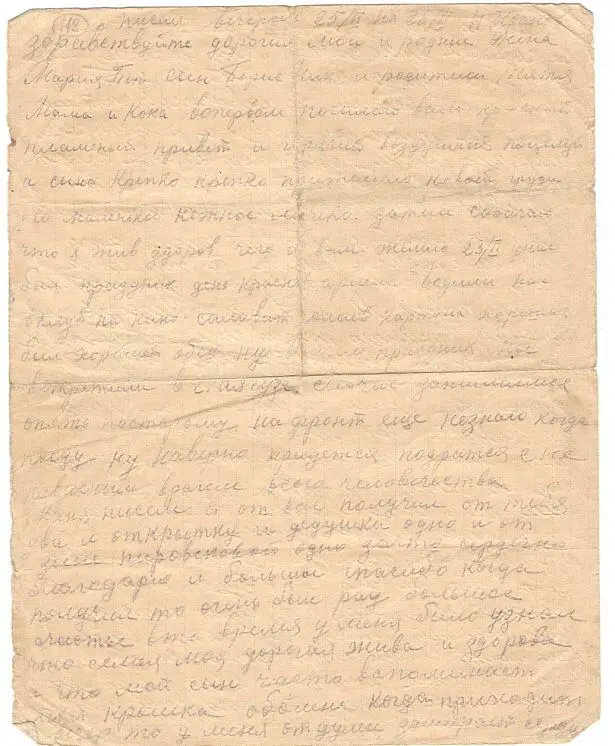 118
писал вечером 25/II на 26/II
Здравствуйте дорогия мои и родные жена
Мария П сын Борис Ник и родители тятя
Мама и Кока вопервом посылаю вам красный
пламеный привет и горячий воздушный поцелуй
а сына Крепко крепко прижимаю к своей груди
его маленкае нежное личико. затем сообчаю
что я жив здоров чего и вам желаю 23/II у нас
был праздник день красной армии водили нас
в клуб на кино Салават Юлаев картина хорошая
был хороший обед ну
встретили в г. сейчас занимаимся
опять постарому на фронт еще незнаю когда
поеду ну наверно придется подратся с не
врагом всего человечества.
письма я от вас получил от тебя
два и открытку и дедушки одно и от
одно зато сердечно
благодарю и большое спасибо когда
получил то очень был рад большое
счастье ето время у меня было узнал
что семия моя дорогая жива и здорова
и что мой сын часто вспоминает
меня крошка обо мне когда приходит
вечер то у меня от думы замирает се